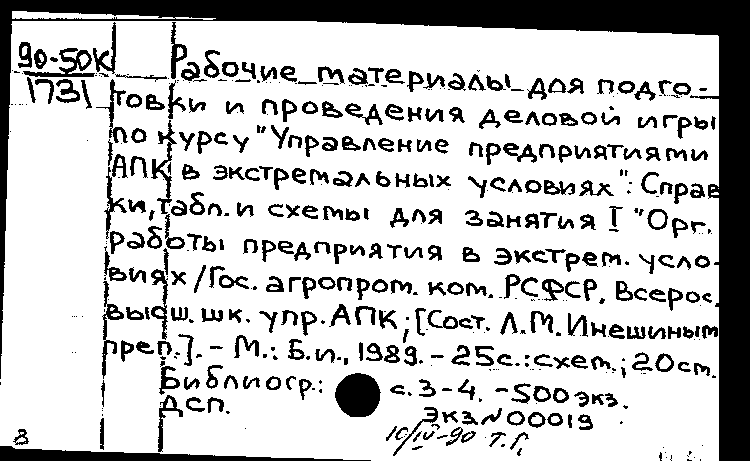 90-50К
1731
Рабочие материалы для подго-
товки и проведения деловой игры
по курсу "Управление предприятиями
АПК в экстремальных условиях": Справ
ки, табл. и схемы для занятия I "Орг.
работы предприятия в экстрем. усло-
виях / Гос. агропром. ком. РСФСР, Всерос.
высш. шк. упр. АПК; [Сост. Л.М. Инешиным
преп.]. - М.: Б.и., 1989. - 25с.: схем.; 20см.
Библиогр.: с. 3-4. - 500 экз.
ДСП. Экз № 00019
8 10/IV-90 Т.Г.